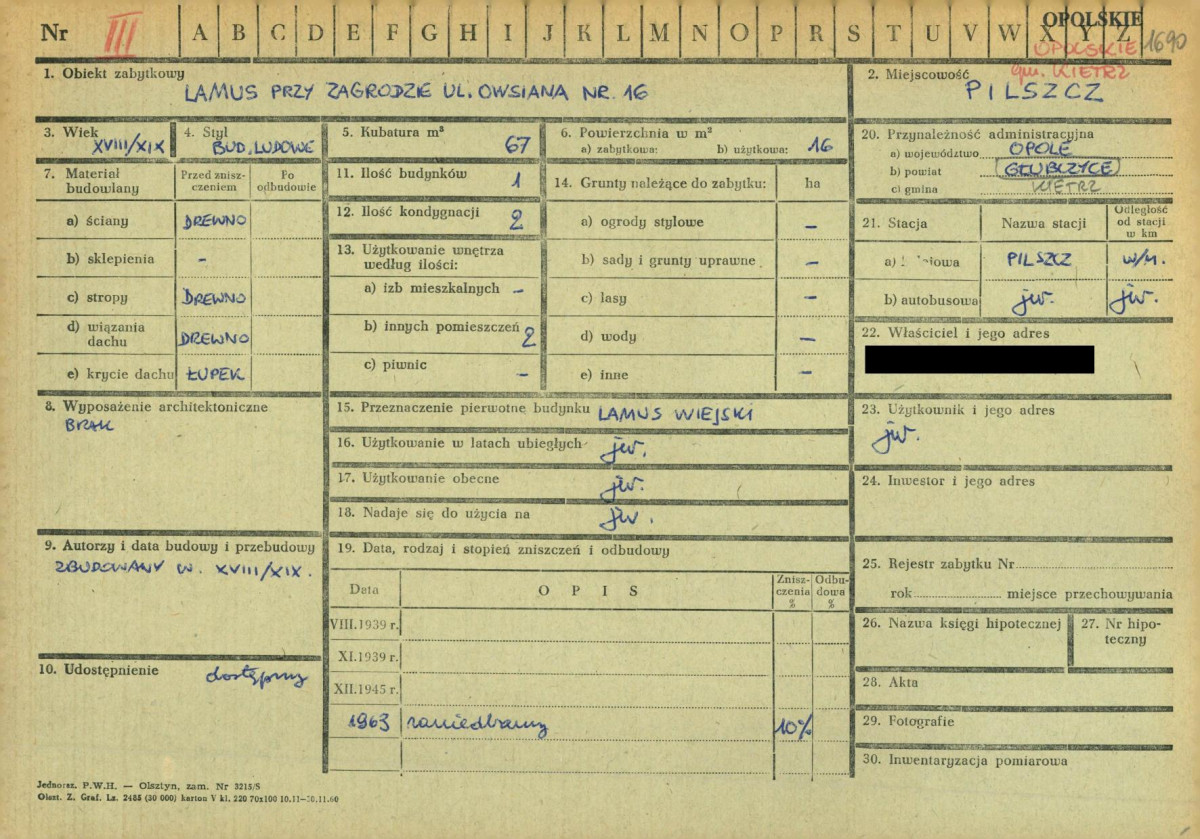 Nr III A B C D E F G H I J K L M N O P R S T U V W X Y Z OPOLSKIE
OPOLSKIE 1690
gm. KIETRZ
1. Obiekt zabytkowy
LAMUS PRZY ZAGRODZIE UL. OWSIANA NR. 16
2. Miejscowość
PILSZCZ
3. Wiek
XVIII/XIX
4. Styl
BUD. LUDOWE
5. Kubatura m³
67
6. Powierzchnia w m²
a) zabytkowa: b) użytkowa: 16
7. Materiał budowlany
Przed zniszczeniem
Po odbudowie
a) ściany DREWNO
b) sklepienia -
c) stropy DREWNO
d) wiązania dachu DREWNO
e) krycie dachu ŁUPEK
8. Wyposażenie architektoniczne
BRAK
9. Autorzy i data budowy i przebudowy
ZBUDOWANY W. XVIII/XIX.
10. Udostępnienie
dostępny
11. Ilość budynków 1
12. Ilość kondygnacji 2
13. Użytkowanie wnętrza
według ilości:
a) izb mieszkalnych -
b) innych pomieszczeń 2
c) piwnic -
14. Grunty należące do zabytku: ha
a) ogrody stylowe -
b) sady i grunty uprawne -
c) lasy -
d) wody -
e) inne -
15. Przeznaczenie pierwotne budynku LAMUS WIEJSKI
16. Użytkowanie w latach ubiegłych jw.
17. Użytkowanie obecne jw.
18. Nadaje się do użycia na jw.
19. Data, rodzaj i stopień zniszczeń i odbudowy
Data OPIS Zniszczenia % Odbudowa %
VIII.1939 r.
XI.1939 r.
XII.1945 r.
1963 zaniedbany 10%
20. Przynależność administracyjna
a) województwo OPOLE
b) powiat GŁUBCZYCE
c) gmina KIETRZ
21. Stacja Nazwa stacji Odległość od stacji w km
a) PILSZCZ w/m.
b) autobusowa jw. jw.
22. Właściciel i jego adres
23. Użytkownik i jego adres
jw.
24. Inwestor i jego adres
25. Rejestr zabytku Nr
rok miejsce przechowywania
26. Nazwa księgi hipotecznej
27. Nr hipoteczny
28. Akta
29. Fotografie
30. Inwentaryzacja pomiarowa
Jednorsz. P.W.H. — Olsztyn, zam. Nr 3215/S
Olszt. Z. Graf. Lz. 2485 (30 000) karton V kl. 220 70x100